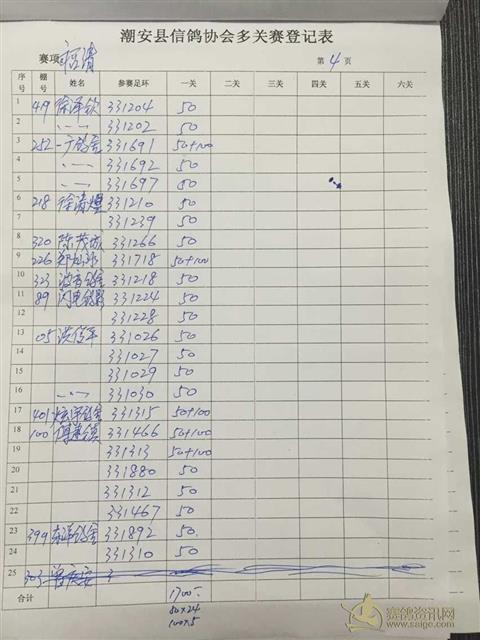 潮安县信鸽协会多关赛登记表
赛项 福清 第 4 页
序号 棚号 姓名 参赛足环 一关 二关 三关 四关 五关 六关
1 419 徐泽钦 331204 50
2 331202 50
3 252 331691 50+100
4 331692 50
5 331697 50
6 218 徐清煌 331210 50
7 331239 50
8 320 陈茂 331266 50
9 226 331718 50+100
10 323 波音鸽舍 331218 50
11 89 闪电鸽 331224 50
12 331228 50
13 05 331026 50
14 331027 50
15 331029 50
16 331030 50
17 401 鸽舍 331315 50+100
18 100 331466 50+100
19 331313 50+100
20 331880 50
21 331312 50
22 331467 50
23 399 鸽舍 331892 50
24 331310 50
25 303
合计 1700
50×24
100×5
赛鸽资讯网
www.saige.com